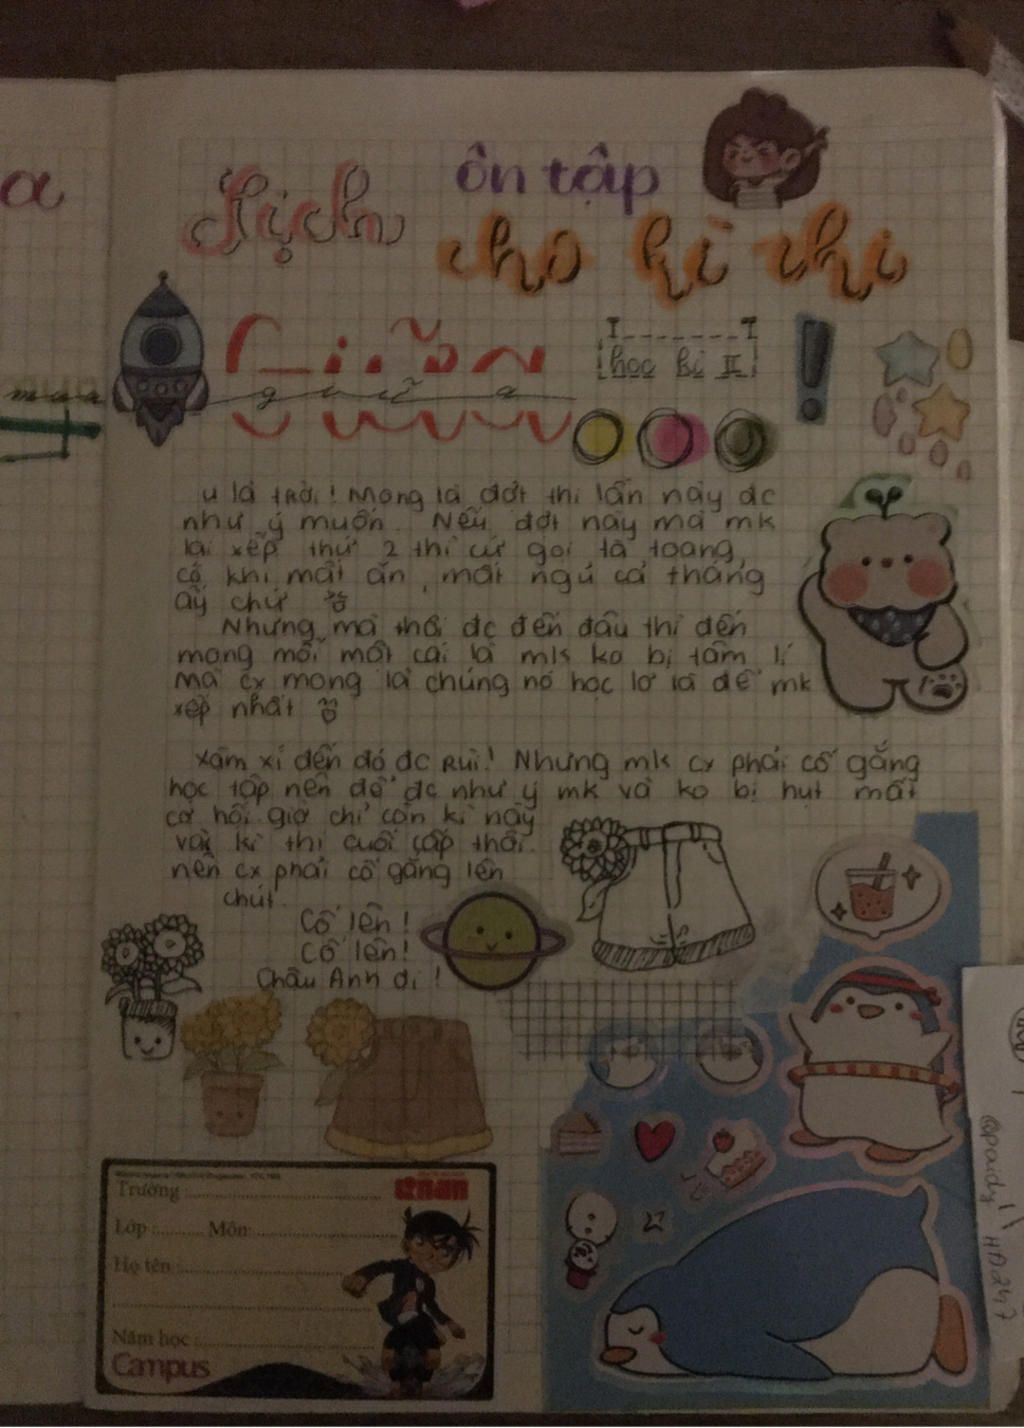 Lịch
ôn tập
cho kì thi
Giữa
giữa
học kì II
!
u là trời! Mong là đợt thi lần này đc
như ý muốn. Nếu đợt này mà mk
lại xếp thứ 2 thì cứ gọi là toang,
có khi mất ăn, mất ngủ cả tháng
ấy chứ
Nhưng mà thôi đc đến đâu thì đến
mong mỗi một cái là mk ko bị tâm lí
mà cx mong là chúng nó học lơ là để mk
xếp nhất
xàm xí đến đó đc rùi! Nhưng mk cx phải cố gắng
học tập nên để đc như ý mk và ko bị hụt mất
cơ hội giờ chỉ còn kì này
và kì thi cuối cấp thôi.
nên cx phải cố gắng lên
chút.
Cố lên!
Cố lên!
Châu Anh ơi!
Trường
CONAN
Lớp Môn
Họ tên
Năm học
Campus